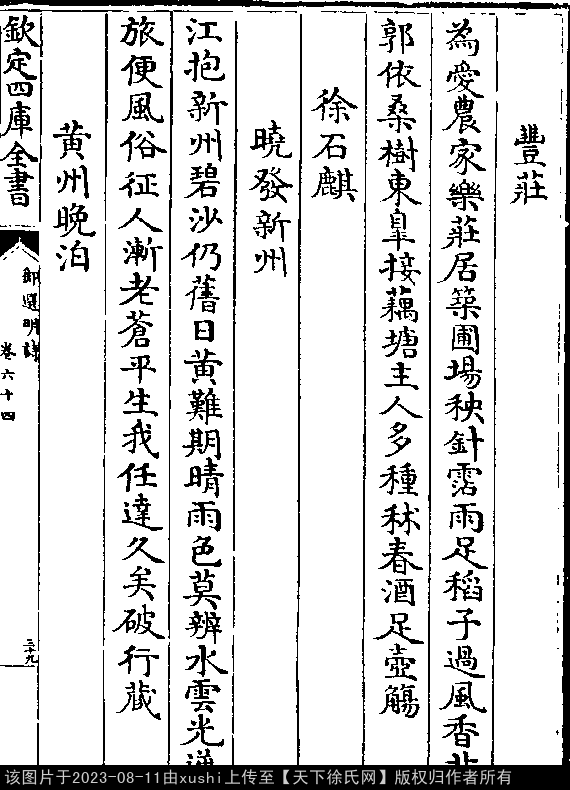 豐莊
為愛農家樂莊居築圃場秧針霑雨足稻子過風香北
郭依桑樹東皐接藕塘主人多種秫春酒足壺觴
徐石麒
曉發新州
江抱新州碧沙仍舊日黄難期晴雨色莫辨水雲光
旅便風俗征人漸老蒼平生我任達久矣破行藏
黄州晚泊
欽定四庫全書
御選明詩
卷六十四
三十九
该图片于2023-08-11由xushi上传至【天下徐氏网】版权归作者所有